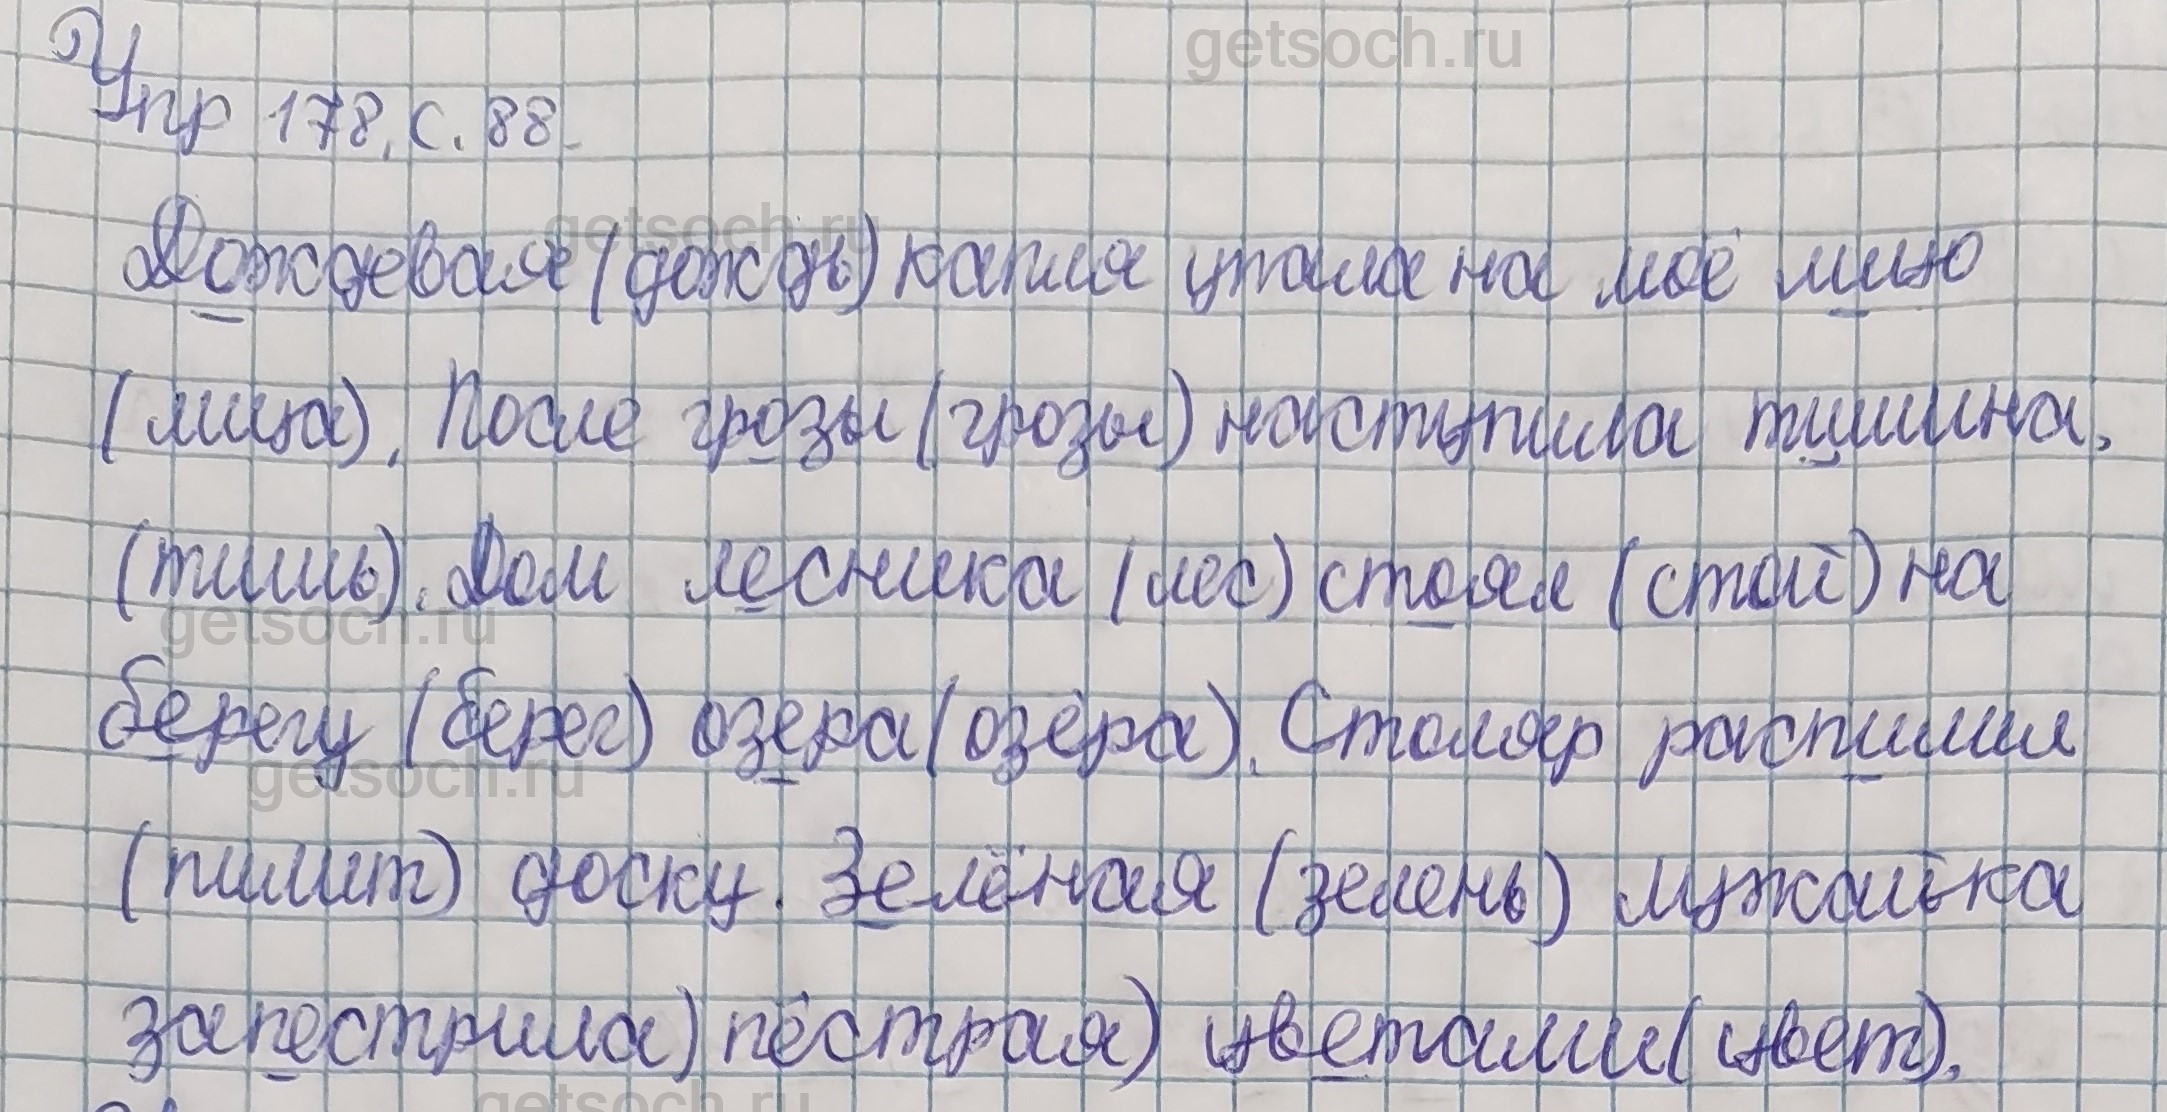 getsoch.ru
Упр 178, с. 88.
getsoch.ru
Дождевая (дождь) капля упала на моё лицо
(лица). После грозы (грозы) наступила тишина.
(тишь). Дом лесника (лес) стоял (стой) на
getsoch.ru
берегу (берег) озера (озёра). Столяр распилил
getsoch.ru
(пилит) доску. Зелёная (зелень) лужайка
запестрила) пёстрая) цветами (цвет).
getsoch.ru